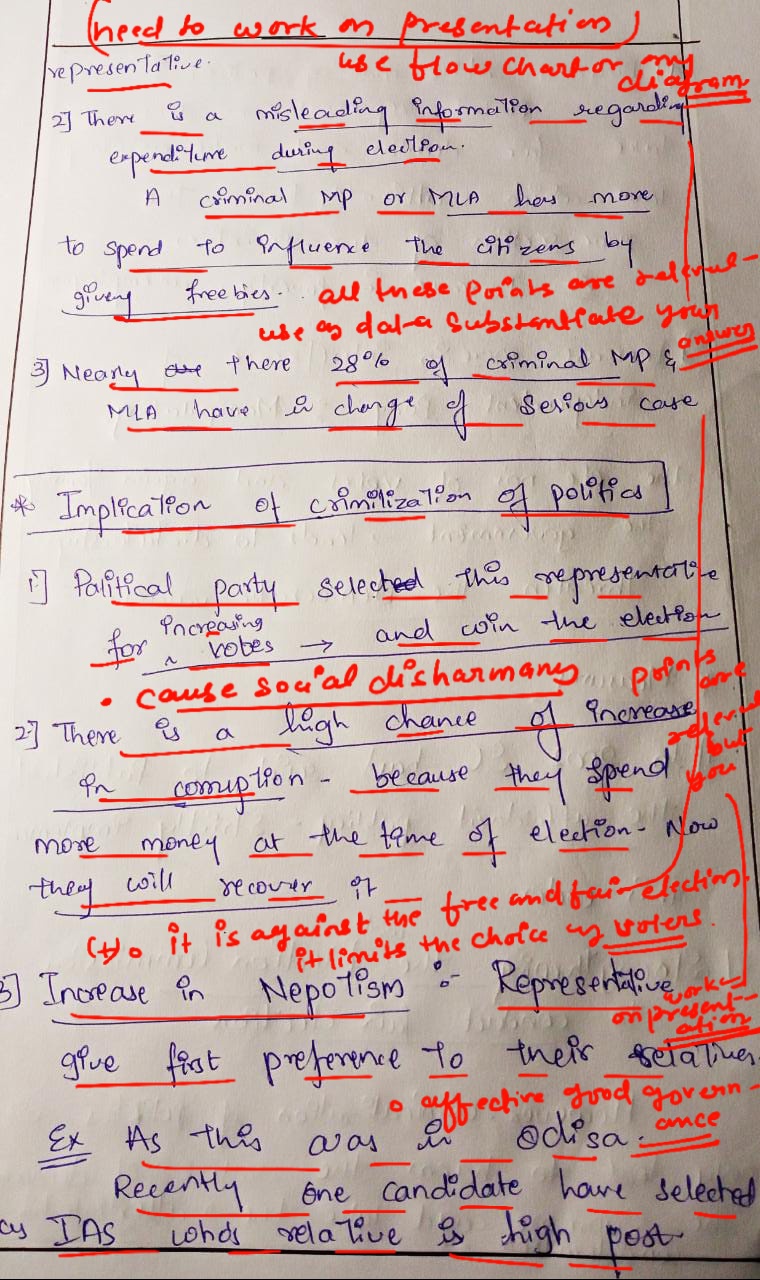 (need to work on presentation)
representative.
use flow chart or any
diagram
2] There is a misleading information regarding
expenditure during election.
A criminal MP or MLA has more
to spend to influence the citizens by
giveng freebies.
all these points are
use as data substantiate your
answer
3] Nearly there 28% of criminal MP &
MLA have in charge of Serious case
* Implication of crimilization of politics
1.] Political party selected this representative
increasing
for votes → and win the election
• cause social disharmany
points
are
but
you
2.] There is a high chance of increase
in corruption - because they spend
more money at the time of election. Now
they will recover it
(+) • it is against the free and fair election.
it limits the choice of voters.
3] Increase in Nepotism :- Representative
work
on present-
ation
give first preference to their relatives
• affective good govern-
ance
Ex As this was in Odisa.
Recently one candidate have selected
as IAS whos relative is high post